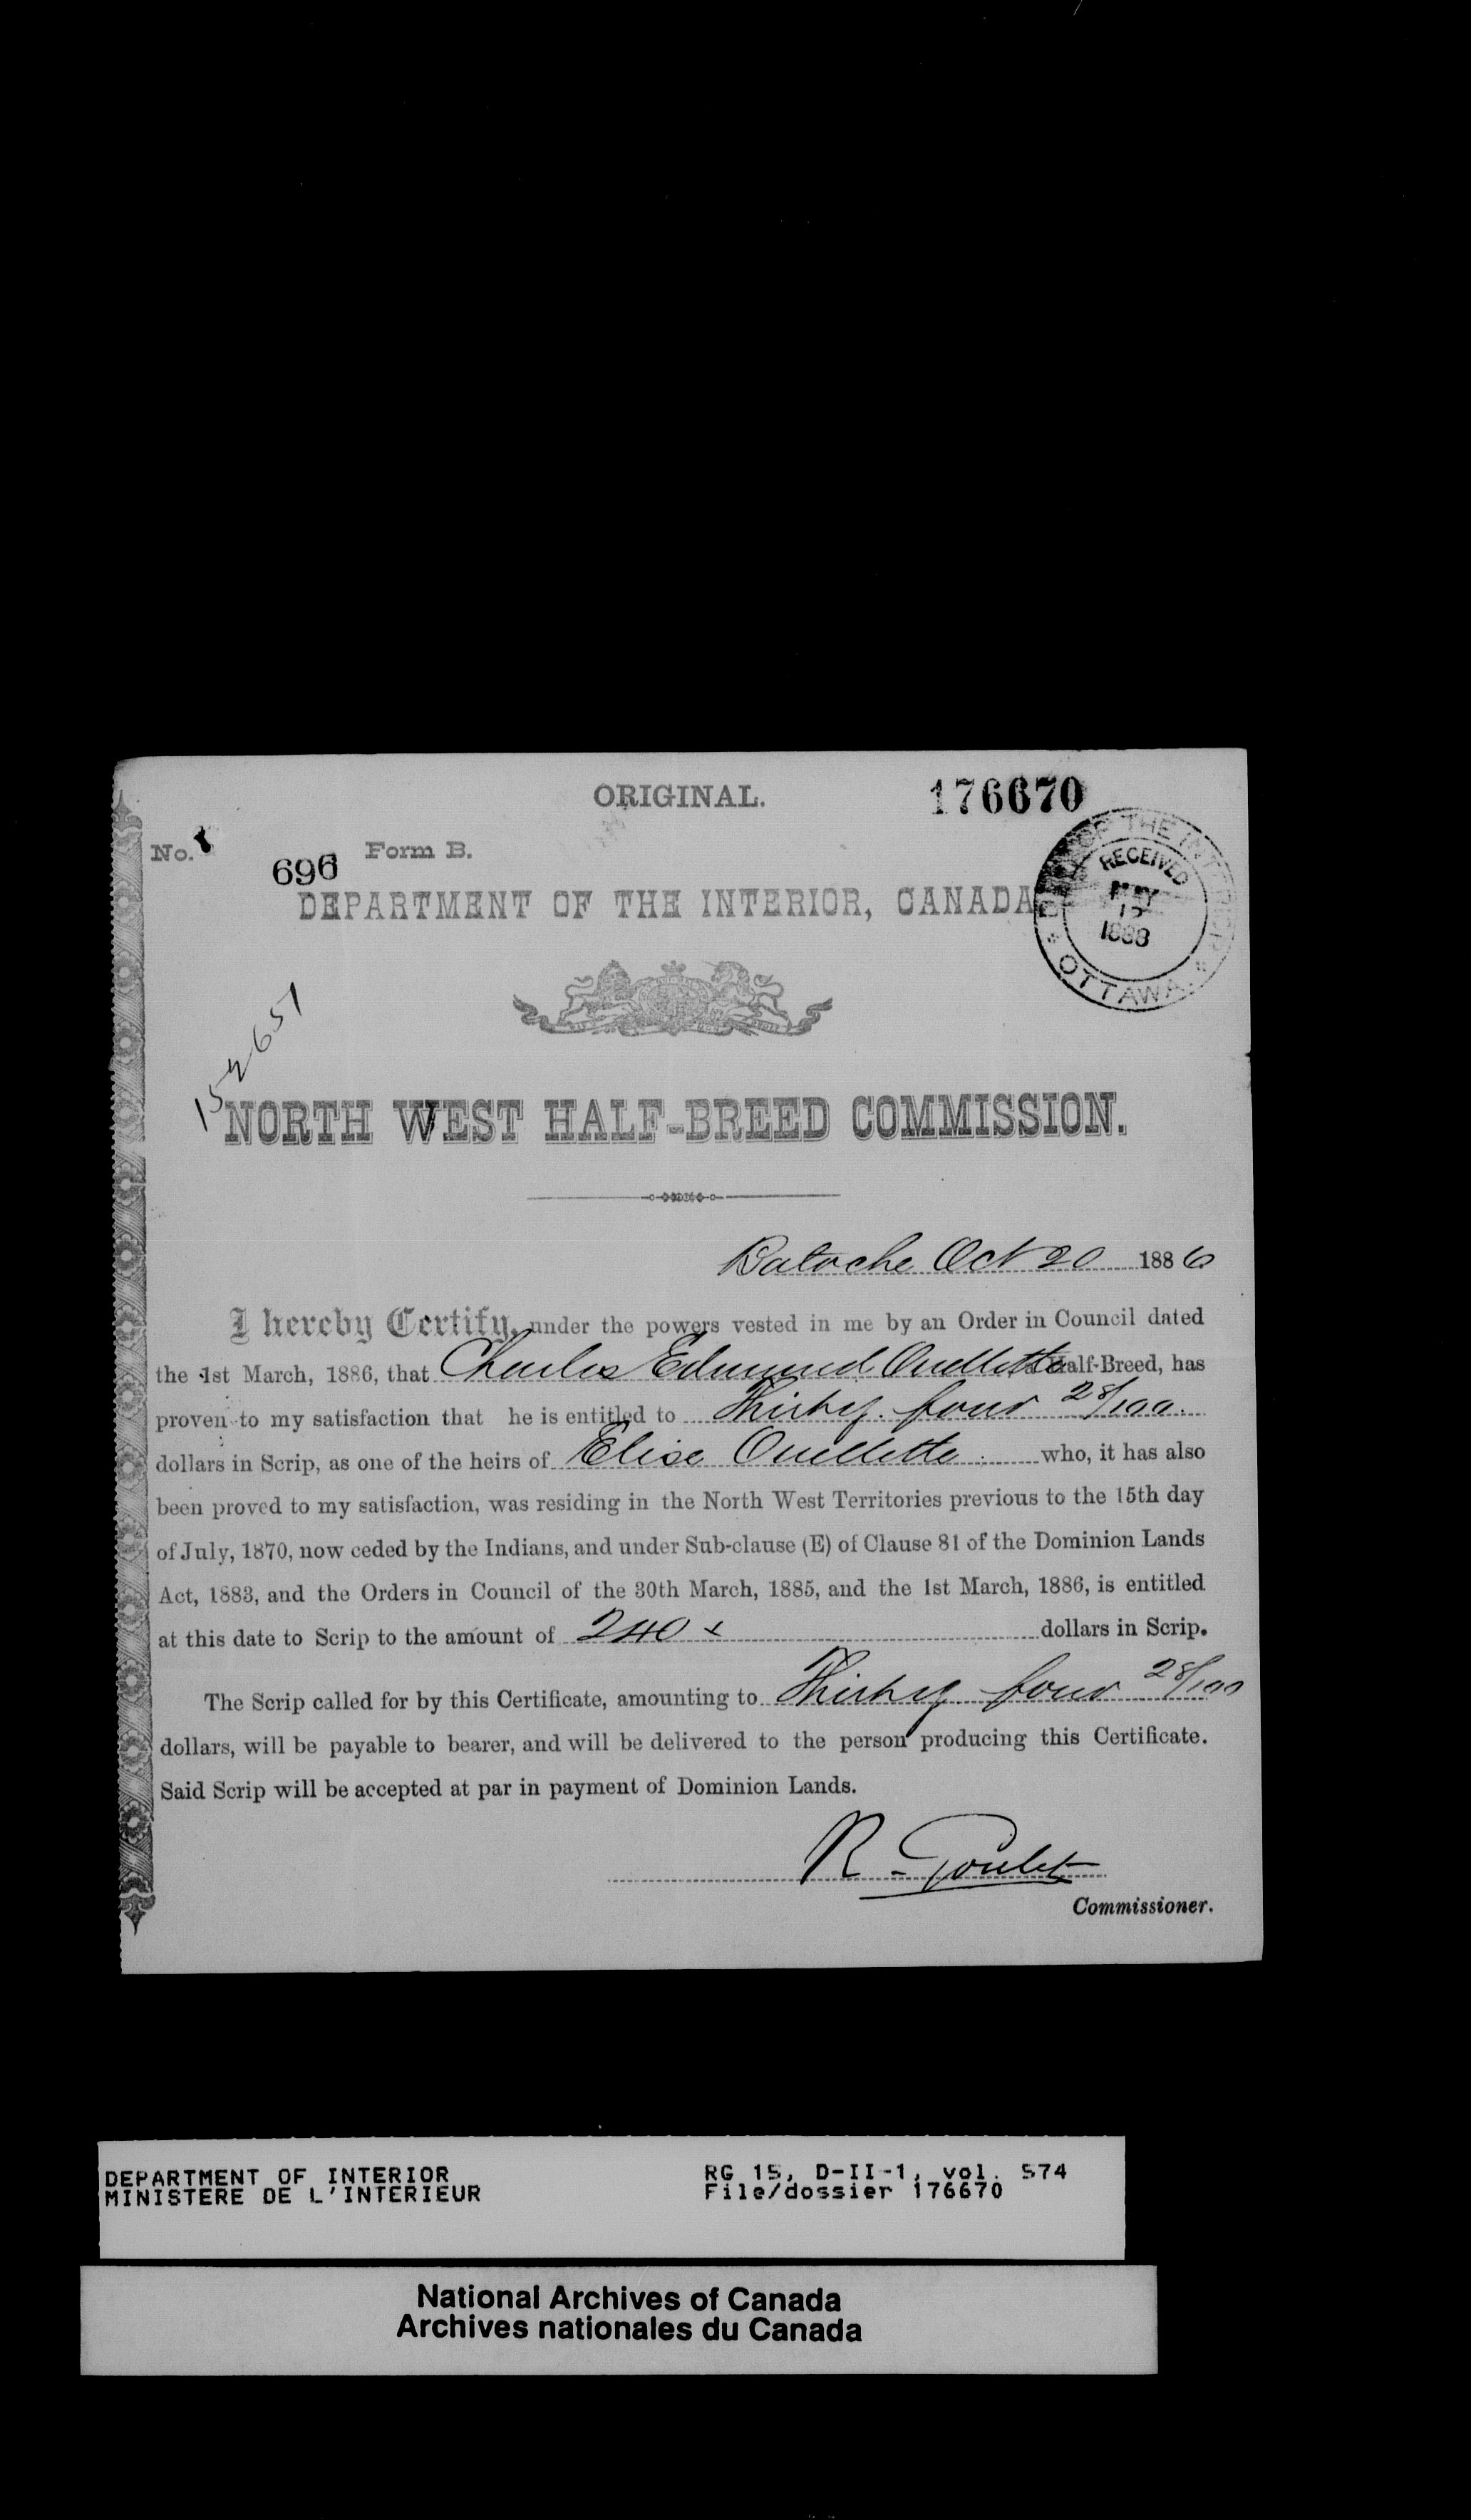 ORIGINAL.
176670
No.
696
Form B.
DEPARTMENT OF THE INTERIOR, CANADA
OF THE INTERIOR
RECEIVED
MAY
1888
OTTAWA.
152651
NORTH WEST HALF-BREED COMMISSION.
Batoche Oct 20 1886
I hereby Certify, under the powers vested in me by an Order in Council dated
the 1st March, 1886, that Charles Edmund Ouellette Half-Breed, has
proven to my satisfaction that he is entitled to Thirty four 28/100
dollars in Scrip, as one of the heirs of Elise Ouellette who, it has also
been proved to my satisfaction, was residing in the North West Territories previous to the 15th day
of July, 1870, now ceded by the Indians, and under Sub-clause (E) of Clause 81 of the Dominion Lands
Act, 1883, and the Orders in Council of the 30th March, 1885, and the 1st March, 1886, is entitled
at this date to Scrip to the amount of 240 x dollars in Scrip.
The Scrip called for by this Certificate, amounting to Thirty four 28/100
dollars, will be payable to bearer, and will be delivered to the person producing this Certificate.
Said Scrip will be accepted at par in payment of Dominion Lands.
R. Goulet
Commissioner.
DEPARTMENT OF INTERIOR
MINISTERE DE L'INTERIEUR
RG 15, D-II-1, vol. 574
File/dossier 176670
National Archives of Canada
Archives nationales du Canada